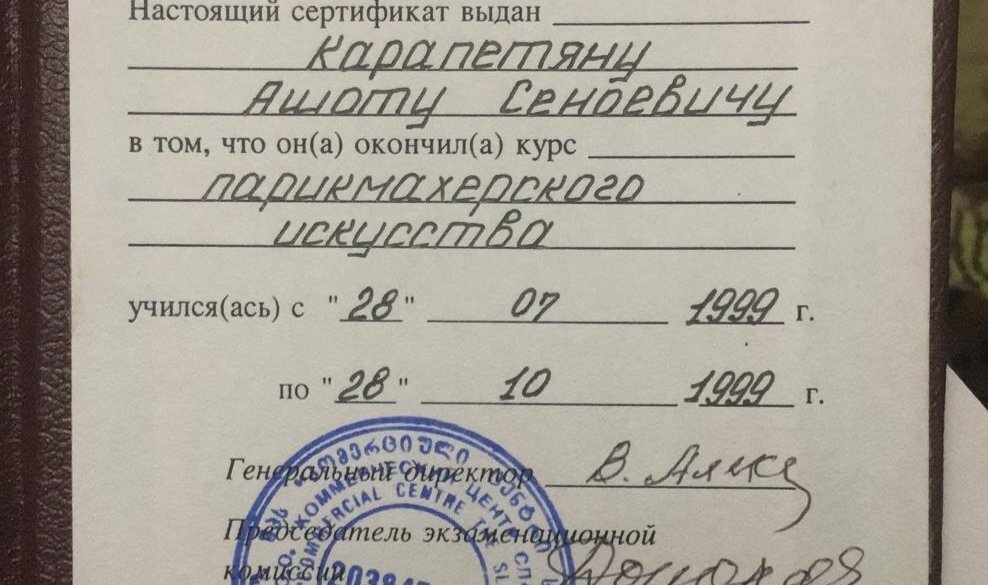 Настоящий сертификат выдан
Карапетяну
Ашоту Сенбевичу
в том, что он(а) окончил(а) курс
парикмахерского
искусства
учился(ась) с "28" 07 1999 г.
по "28" 10 1999 г.
Генеральный директор
Председатель экзаменационной
комиссии
კომერციული ცენტრი
КОММЕРЧЕСКИЙ ЦЕНТР
COMMERCIAL CENTRE